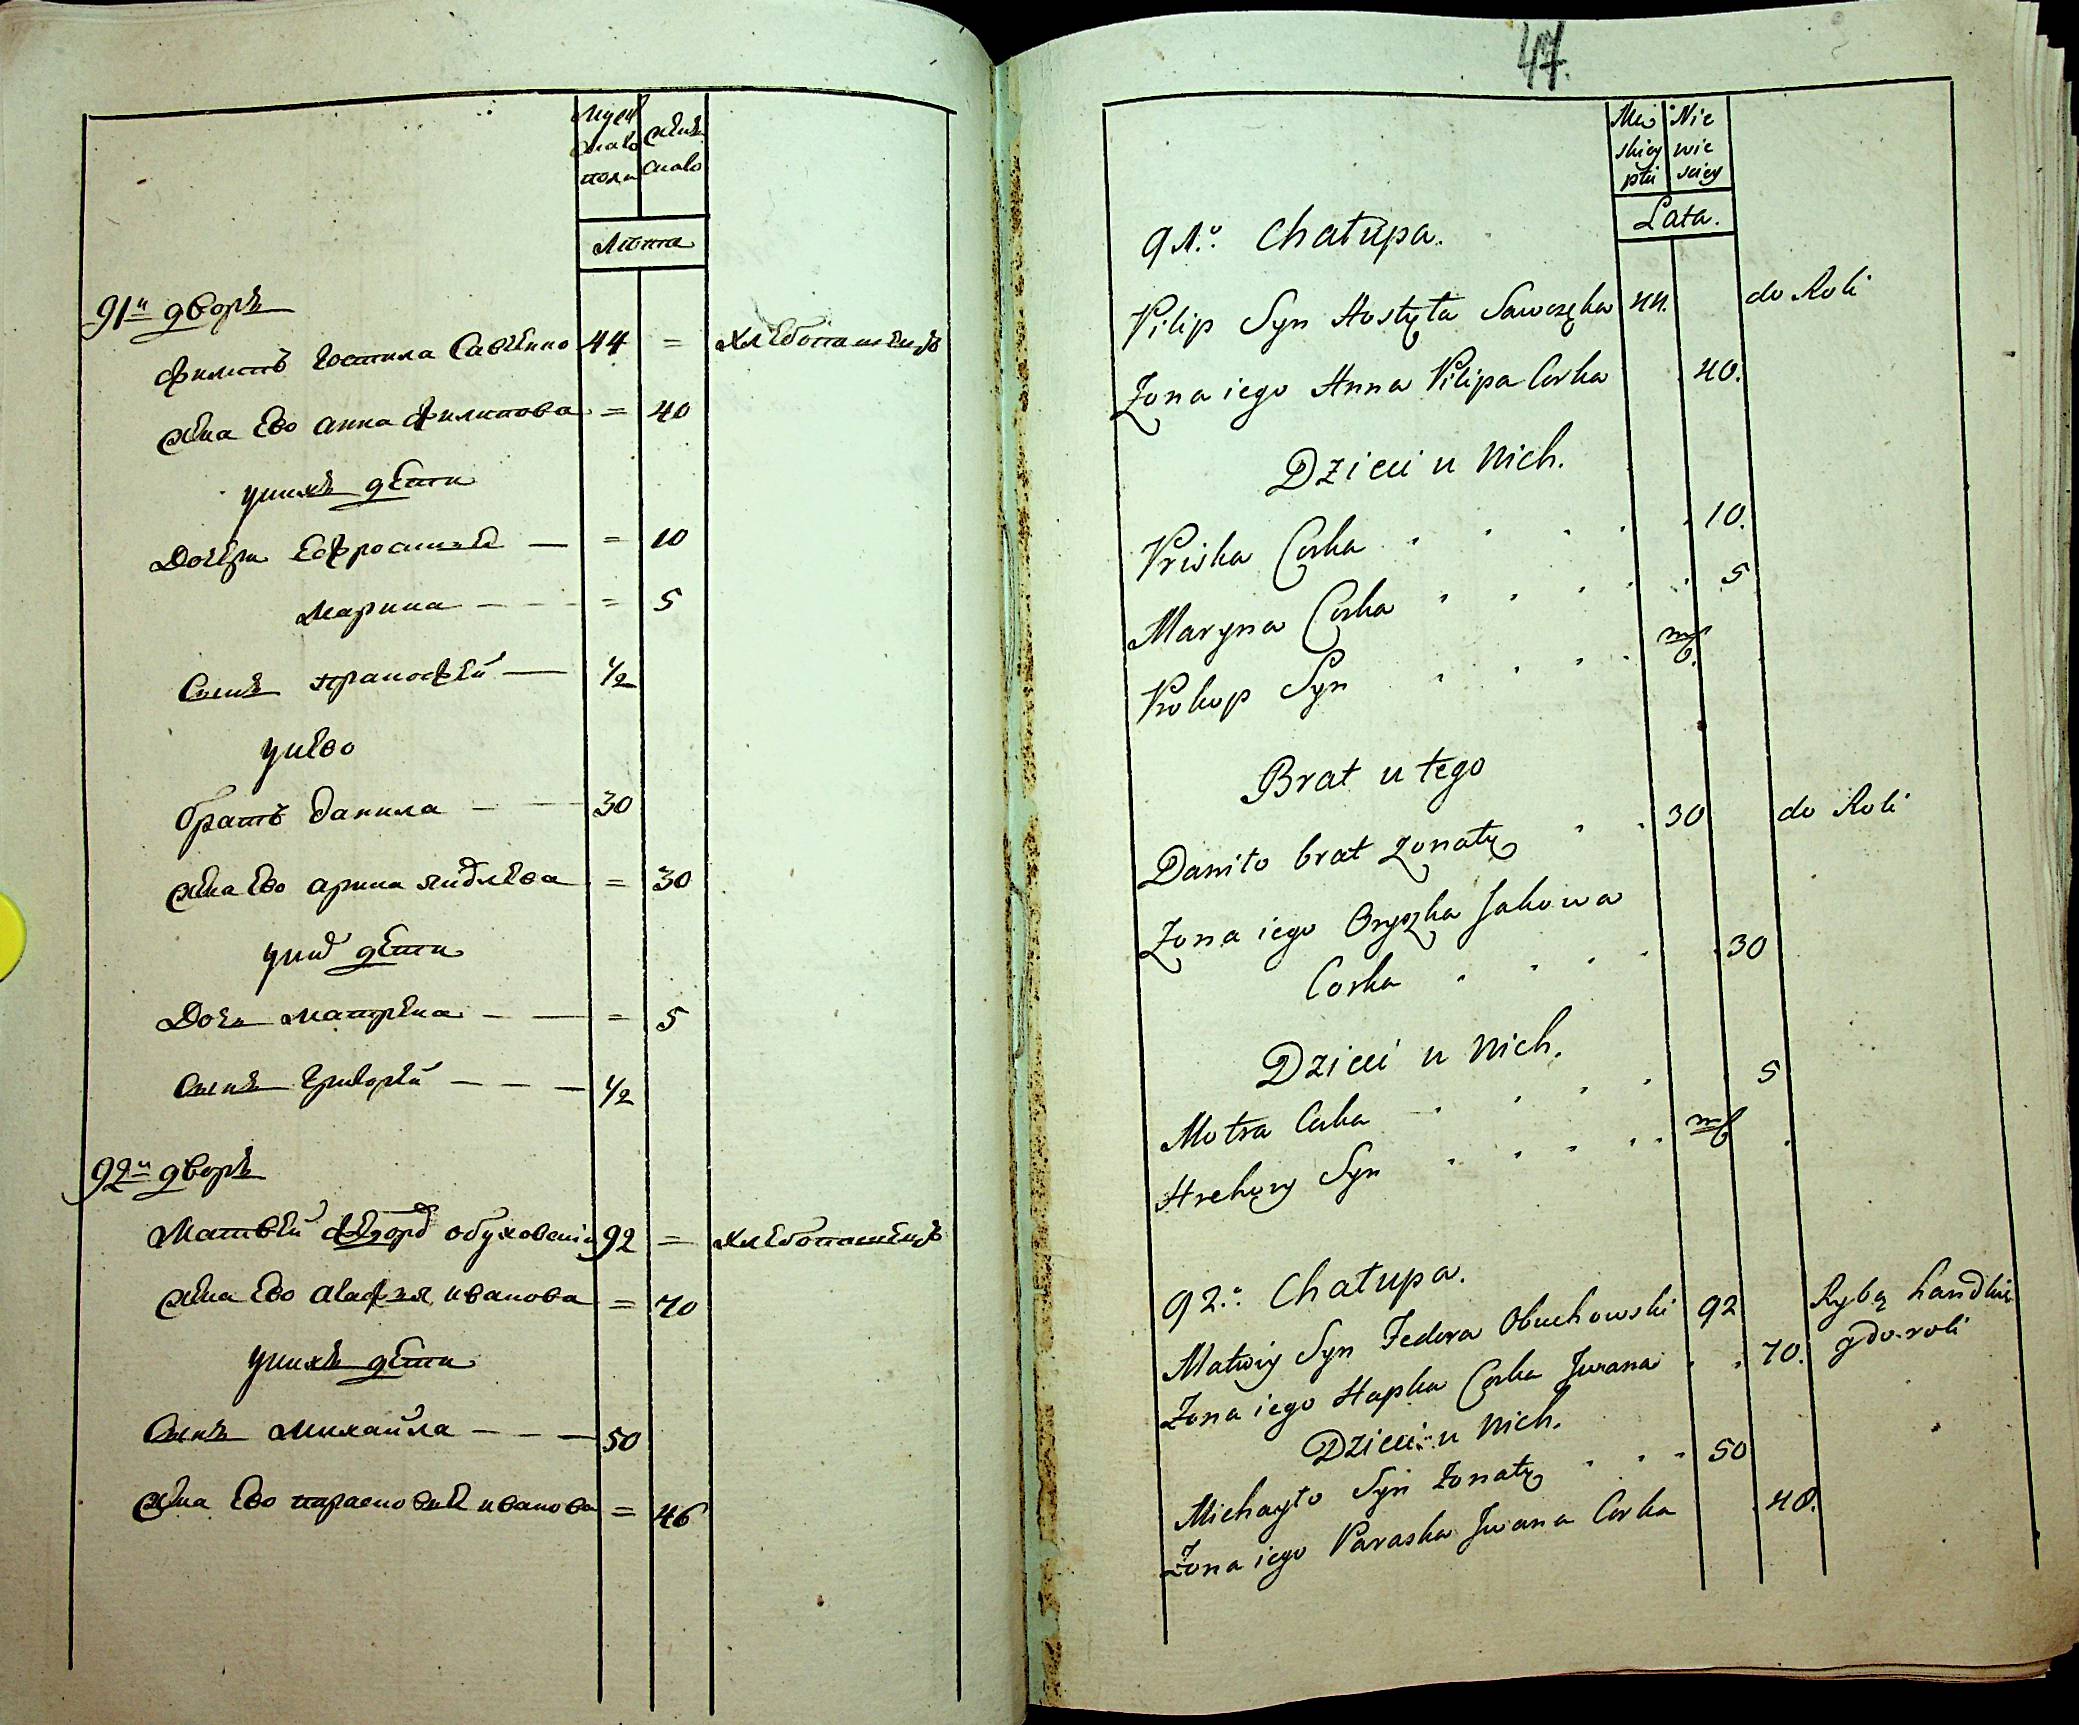 Мужеска полу
женска
Лѣта
91й дворъ
Филипъ Гостила Савченко 44 = хлѣбопашецъ
жена ево анна филипова = 40
у нихъ дѣти
Дочери Ефросинья — = 10
марина — = 5
Сынъ прокофей — 1/2
у нево
братъ данила — 30
жена ево арина яковлева = 30
у них дѣти
Дочь матрена — = 5
Сынъ григорей — 1/2
92й дворъ
Матвей федоров обуховский 92 = хлѣбопашецъ
жена ево агафия иванова = 70
у нихъ дѣти
Сынъ михайла — 50
жена ево парасковья иванова = 46
47.
Mę skiey płci
Nie wie sciey
Lata.
91.o Chałupa.
Filip Syn Hostyła Sawczęka 44. do Roli
Żona iego Anna Filipa Corka 40.
Dzieci u Nich.
Priska Corka 10.
Maryna Corka 5
Prokop Syn
Brat u tego
Daniło brat żonaty 30 do Roli
Żona iego Oryszka Jakowa
Corka 30
Dzieci u Nich.
Motra Corka 5
Hrehory Syn
92.o Chałupa.
Matwiy Syn Fedora Obuchowski 92 Rybą handluie
Żona iego Hapka Corka Iwana 70. y do roli
Dzieci u Nich.
Michayło Syn Żonaty 50
Żona iego Paraska Iwana Corka 40.